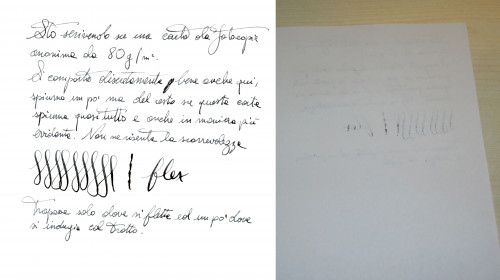 Sto scrivendo su una carta da fotocopie
anonima da 80 g/m².
Si comporta discretamente bene anche qui,
spiuma un po' ma del resto su questa carta
spiuma quasi tutto e anche in maniera più
evidente. Non ne risente la scorrevolezza
flex
Trapassa solo dove si flette ed un po' dove
si indugia col tratto.